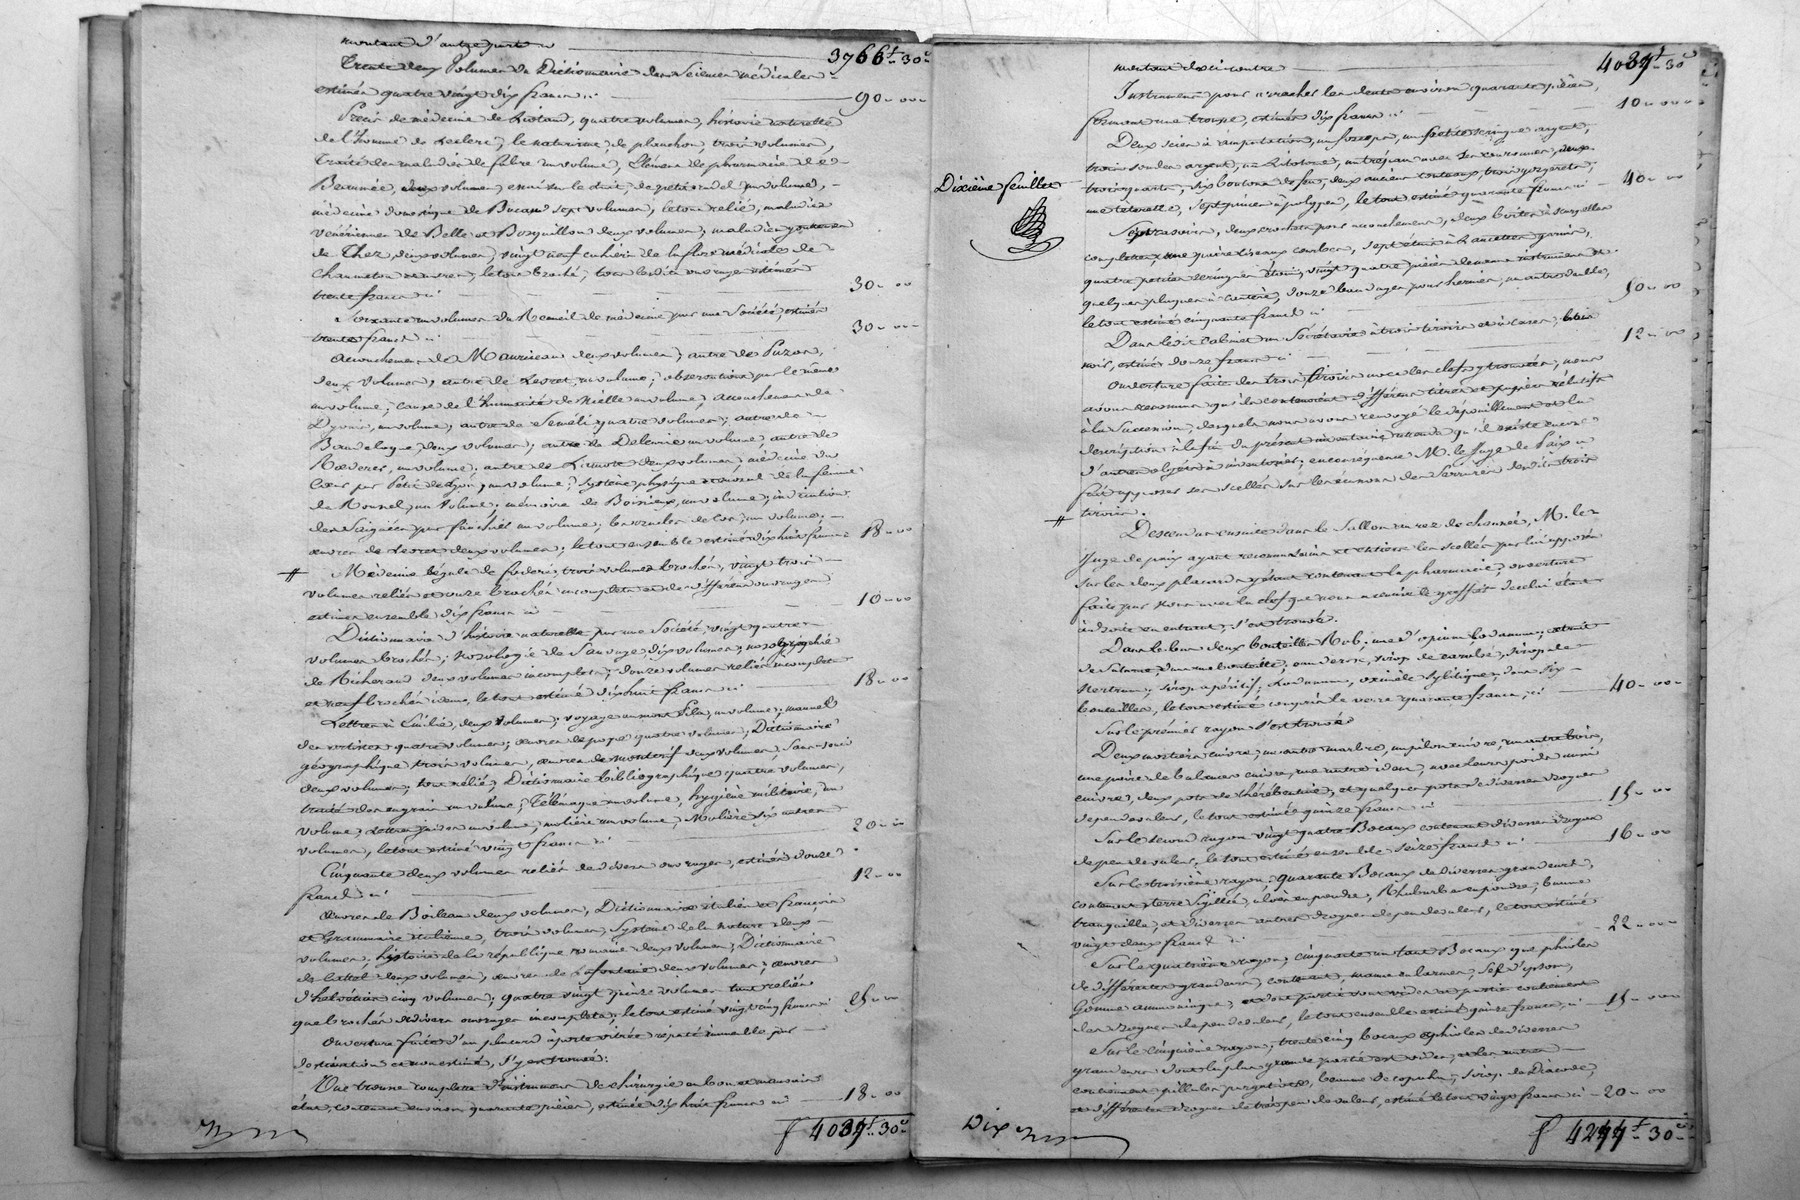 montant d'autre part 3766f 30c
Trente deux Volumes du Dictionnaire des Sciences médicales
estimés quatre vingt dix francs ci 90 00
Précis de médecine de Lieutaud, quatre volumes, histoire naturelle
de l'homme de Leclerc, le naturisme de planchon, trois volumes,
Traité des maladies de fibre un volume, Elémens de pharmacie de
Beaumée, deux volumes, essai sur le un volume,
médecine domestique de Bucan sept volumes, le tout relié, maladies
vénériennes de Belle et Bosquillon deux volumes; maladies
de Chez deux volumes, vingt neuf cahiers de la flore médicale de
Chaumeton et autres, le tout broché; tous lesdits ouvrages estimés
trente francs ci 30 00
Soixante un volumes du Recueil de médecine par une Société, estimés
trente francs ci 30 00
Accouchemens de Mauriceau deux volumes; autre de Puzos,
deux volumes, autre de Levret, un volume; observations par le même
un volume; cause de l'humanité de Nielle un volume, accouchemens de
Dyonis, un volume; autre de quatre volumes; autre de
Baudeloque, deux volumes; autre de Deleurie un volume, autre de
Roederer, un volume; autre de Lamotte deux volumes, médecine du
Cœur par Petit de Lyon, un volume; Système physique et moral de la femme
de Roussel, un Volume; mémoire de Boisieux, un volume,
des Saignées par un volume; un volume;
œuvres de Levret deux volumes; le tout ensemble estimé dix huit francs 18 00
Médecine légale de foderé, trois volumes brochés, vingt trois
volumes reliés et onze brochés incomplets et de différens ouvrages
estimés ensemble dix francs ci 10 00
Dictionnaire d'histoire naturelle par une Société, vingt quatre
volumes brochés; Nosologie de Sauvage dix volumes; nosographie
de Richerand deux volumes incomplets; douze volumes reliés incomplets
et neuf brochés idem, le tout estimé dix huit francs ci 18 00
Lettres à Emilie, deux volumes; voyage au mont Pila, un volume; manuel
des artistes quatre volumes; œuvres de pope quatre volumes; Dictionnaire
géographique trois volumes, œuvres de moncrif deux volumes, Sans souci
deux volumes, tout relié; Dictionnaire bibliographique quatre volumes,
traité des engrais un volume; Télémaque un volume, hygiène militaire, un
volume; Lettres un volume; molière un volume; Molière six autres
volumes, le tout estimé vingt francs ci 20 00
Cinquante deux volumes reliés de divers ouvrages, estimés douze
francs ci 12 00
Œuvres de Boileau deux volumes, Dictionnaire italien et français
et Grammaire italienne, trois volumes, Système de la nature deux
volumes; histoire de la république romaine deux volumes; Dictionnaire
de deux volumes, œuvres de Lafontaine deux volumes; œuvres
d'helvétius cinq volumes; quatre vingt quinze volumes tant reliés
que brochés de divers ouvrages incomplets; le tout estimé vingt cinq francs 25 00
Ouverture faite d'un placard à porte vitrée réputé immeuble par
destination et non estimé, s'y est trouvé:
Une trousse complette d'instrumens de chirurgie en bon et mauvais
état, contenant environ quarante pièces, estimée dix huit francs ci 18 00
f 4037f 30c
montant de ci contre 4037f 30c
Instrumens pour arracher les dents environ quarante pièces,
formant une trousse, estimés dix francs ci 10 00
Deux scies à amputation, un forceps, une petite seringue argent,
trois sondes argent, un Litotome, un trépan avec ses couronnes, deux
trois quarts, six boutons de feu, deux anciens couteaux, trois
une têterelle, Sept pinces à polypes, le tout estimé quarante francs ci 40 00
Dixième feuillet
Sept rasoirs, deux crochets pour accouchemens, deux boites à
complettes, une paire ciseaux courbes, sept étuis à Lancettes garnis,
quatre petites seringues étain, vingt quatre pièces de menus instrumens et
quelques plaques à cautère, douze bandages pour hernies, un autre double,
le tout estimé cinquante francs ci 50 00
Dans ledit Cabinet un Secrétaire à trois tiroirs et à cases, bois
noir, estimé douze francs ci 12 00
Ouverture faite des trois tiroirs avec les clefs y trouvées; nous
avons reconnu qu'ils contenoient différens titres et papiers rélatifs
à la Succession, desquels nous avons renvoyé le dépouillement et la
description à la fin du présent inventaire attendu qu'il existe encore
d'autres objets à inventorier; en conséquence M. le Juge de Paix a
fait apposer ses scellés sur les écussons des Serrures desdits trois
tiroirs.
Descendus ensuite dans le Sallon au rez de chaussée, M. le
Juge de paix ayant reconnu Sains et entiers les scellés par lui apposés
sur les deux placards y étant contenant la pharmacie; ouverture
faite par nous avec la clef que nous a remise le greffier de celui étant
à droite en entrant, s'est trouvé.
Dans le bas deux bouteilles Rob; une d'opium laudanum; extrait
de Saturne dans une bouteille, eau de rose, sirop de karabé, sirop de
Nerprun; sirop apéritif; Laudanum, oximèle Scillitique; dans six
bouteilles, le tout estimé compris le verre quarante francs, ci 40 00
Sur le premier rayon s'est trouvé
Deux mortiers cuivre; un autre marbre, un pilon cuivre, un autre bois,
une paire de balances cuivre, une autre idem, avec leurs poids aussi
cuivre, deux pots de thérébentine; et quelques pots de diverses drogues
de peu de valeur, le tout estimé quinze francs ci 15 00
Sur le second rayon vingt quatre Bocaux contenant diverses drogues
de peu de valeur, le tout estimé ensemble seize francs ci 16 00
Sur le troisième rayon; quarante Bocaux de diverses grandeurs,
contenant terre Sigillée, aloès en poudre; Rhubarbe en poudre; baume
tranquille, et diverses autres drogues de peu de valeur, le tout estimé
vingt deux francs ci 22 00
Sur le quatrième rayon; cinquante un tant Bocaux que phioles
de différentes grandeurs, contenant, manne en larmes; Sel d'epsom,
Gomme ammoniaque, et dont partie sont vides et partie contiennent
des drogues de peu de valeur, le tout ensemble estimé quinze francs, ci 15 00
Sur le cinquième rayon; trente cinq bocaux et phioles de diverses
grandeurs dont la plus grande partie est vides, et les autres
contiennent pillules purgatives, baume de copahu; sirop de Diacode,
et différentes drogues de très peu de valeur, estimé le tout vingt francs ci 20 00
Dix
f 4277f 30c